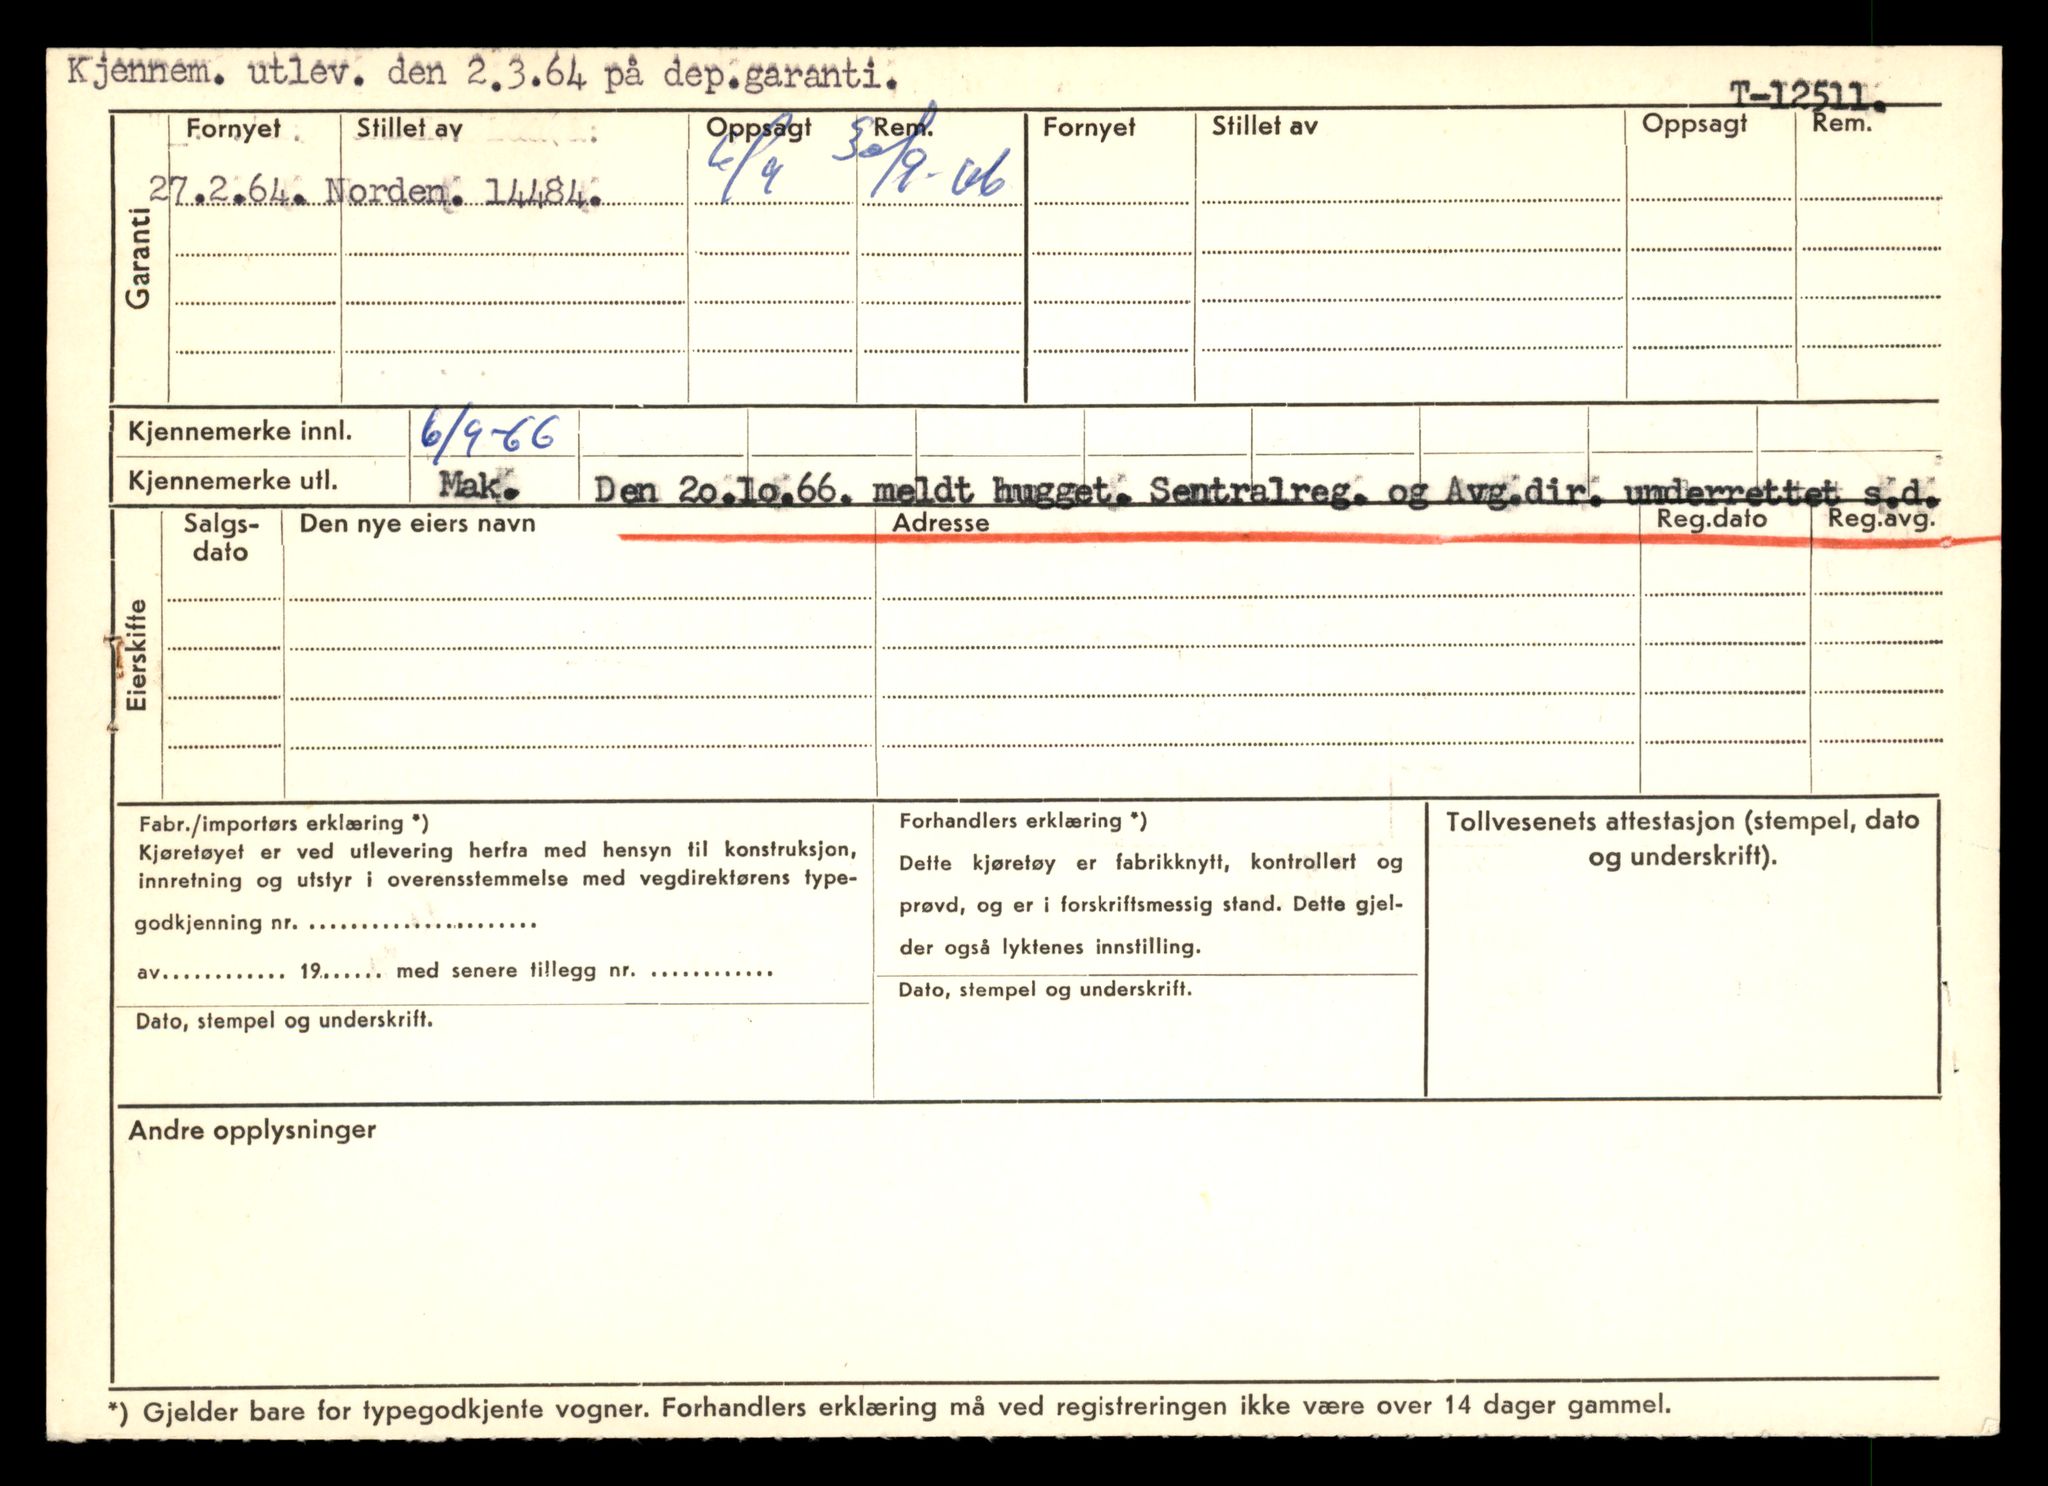 Kjennem. utlev. den 2.3.64 på dep.garanti.
T-12511.
Garanti
Fornyet Stillet av Oppsagt Rem. Fornyet Stillet av Oppsagt Rem.
27.2.64. Norden. 14484. 6/9 30/9-66
Kjennemerke innl. 6/9-66
Kjennemerke utl. Mak. Den 2o.1o.66. meldt hugget. Sentralreg. og Avg.dir. underrettet s.d.
Eierskifte
Salgs- Den nye eiers navn Adresse Reg.dato Reg.avg.
dato
Fabr./importørs erklæring *)
Kjøretøyet er ved utlevering herfra med hensyn til konstruksjon,
innretning og utstyr i overensstemmelse med vegdirektørens type-
godkjenning nr. ......................
av............ 19...... med senere tillegg nr. ............
Dato, stempel og underskrift.
Forhandlers erklæring *)
Dette kjøretøy er fabrikknytt, kontrollert og
prøvd, og er i forskriftsmessig stand. Dette gjel-
der også lyktenes innstilling.
Dato, stempel og underskrift.
Tollvesenets attestasjon (stempel, dato
og underskrift).
Andre opplysninger
*) Gjelder bare for typegodkjente vogner. Forhandlers erklæring må ved registreringen ikke være over 14 dager gammel.